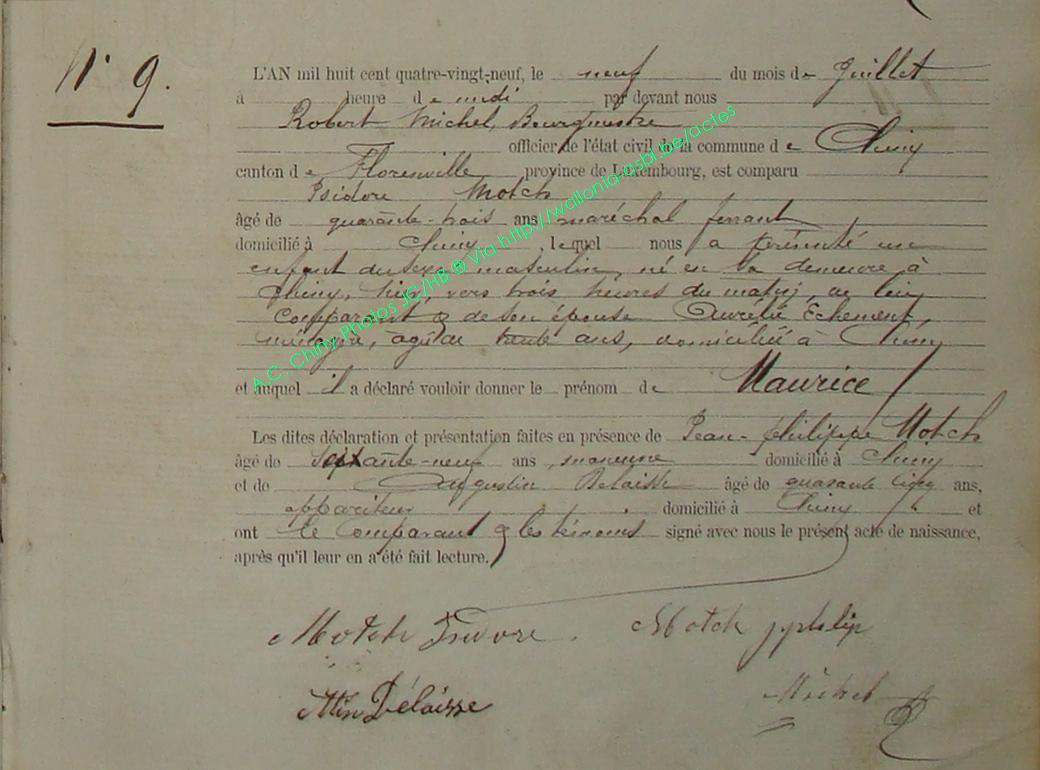 N° 9.
L'AN mil huit cent quatre-vingt-neuf, le neuf du mois de Juillet
à heure de midi par devant nous
Robert Michel, Bourgmestre
officier de l'état civil de la commune de Chiny
canton de Florenville province de Luxembourg, est comparu
Isidore Motch
âgé de quarante-trois ans maréchal ferrant
domicilié à Chiny, lequel nous a présenté un
enfant du sexe masculin, né en sa demeure à
Chiny, hier, vers trois heures du matin, de lui
comparant & de son épouse Aurélie Echement,
ménagère, âgée de trente ans, domiciliée à Chiny
et auquel il a déclaré vouloir donner le prénom de Maurice
Les dites déclaration et présentation faites en présence de Jean-Philippe Motch
âgé de soixante-neuf ans, domicilié à Chiny
et de Augustin Delaisse âgé de quarante cinq ans,
appariteur domicilié à Chiny et
ont le comparant & les témoins signé avec nous le présent acte de naissance,
après qu'il leur en a été fait lecture.
Motch Isidore. Motch j philip
Attin Délaisse Michel R
A.C. Chiny Photos JC/HB ® Via http://wallonia-asbl.be/actes